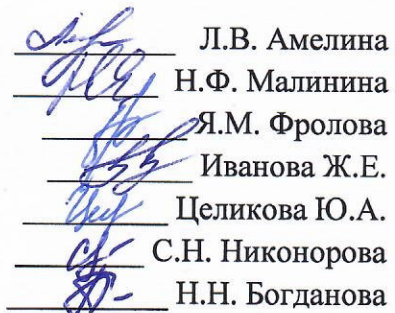 Л.В. Амелина
Н.Ф. Малинина
Я.М. Фролова
Иванова Ж.Е.
Целикова Ю.А.
С.Н. Никонорова
Н.Н. Богданова